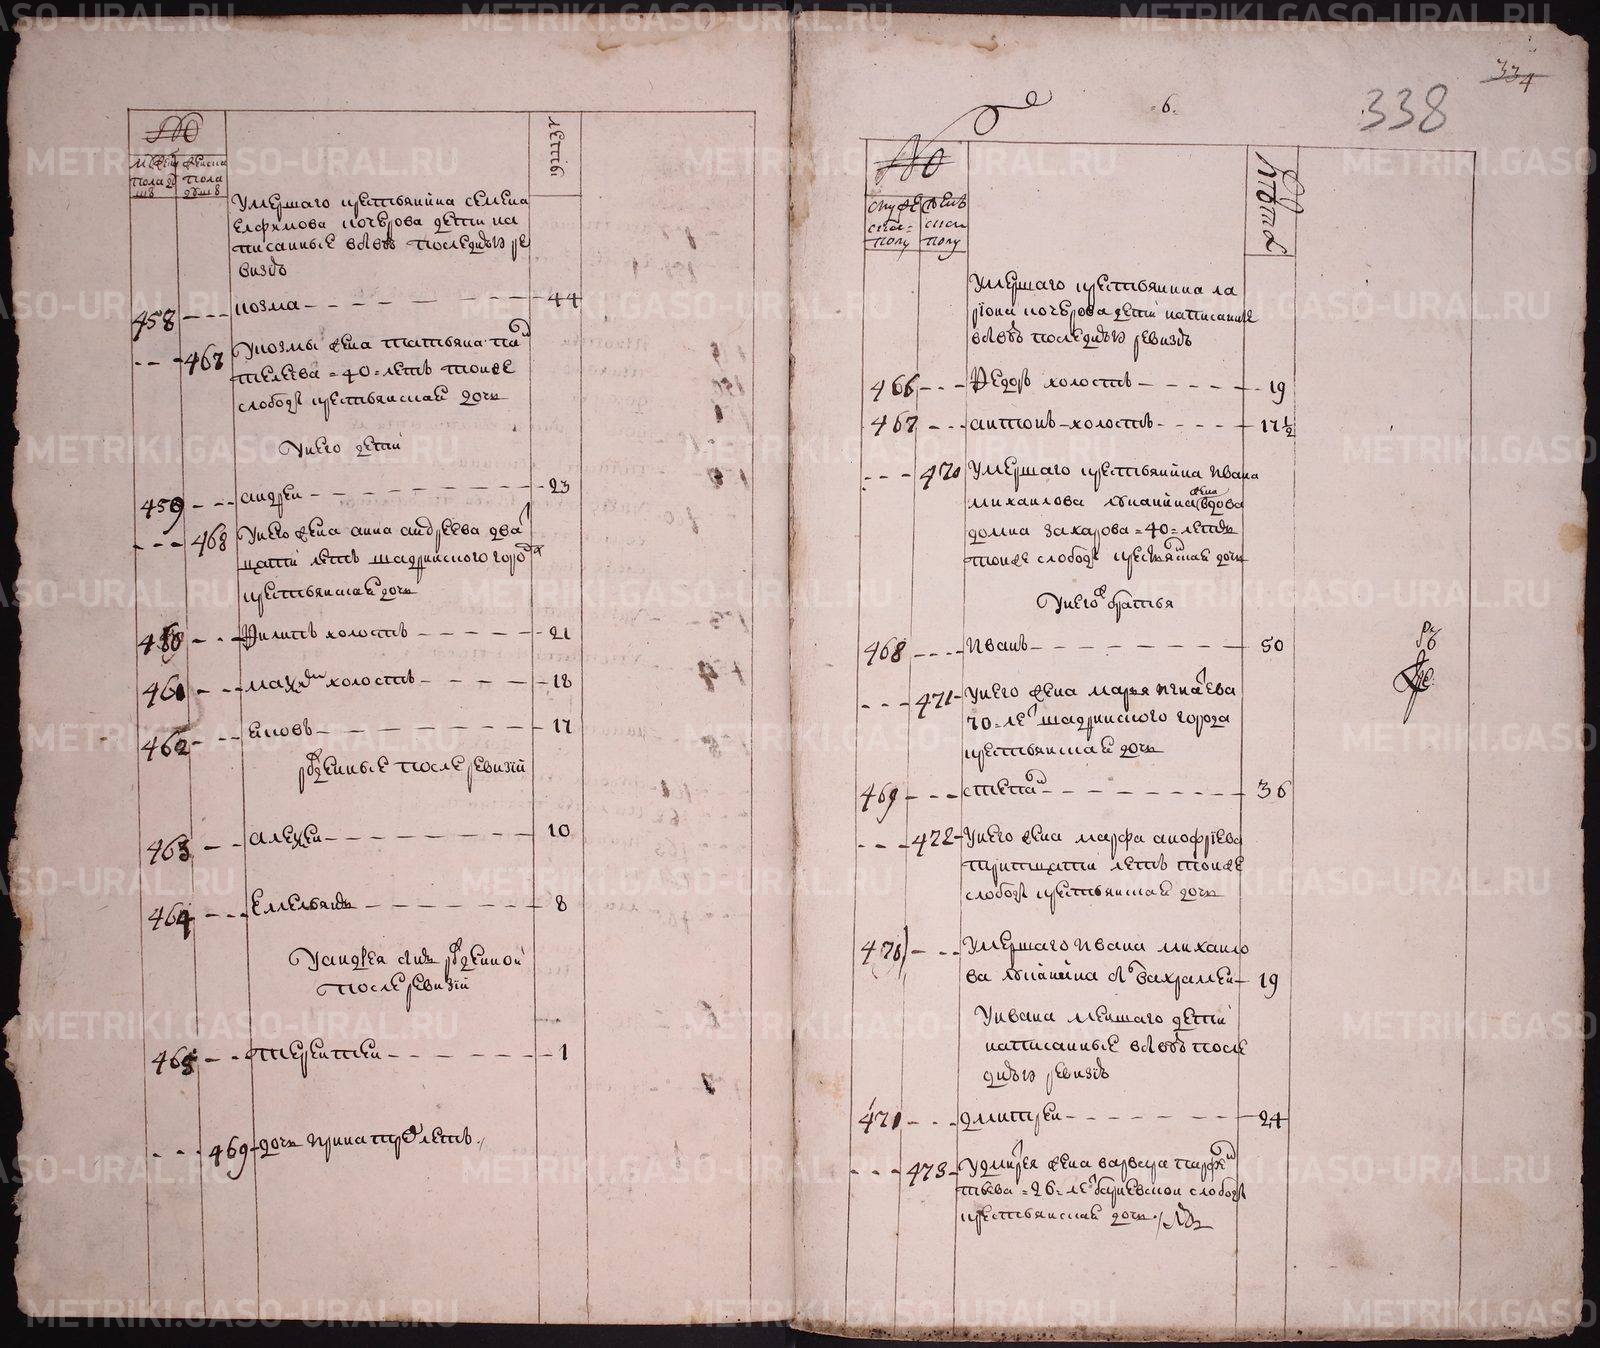 №
мужеска пола душъ
женска пола душъ
лета
умершаго крестьянина семена
елфимова кочерова дети на
писанные въ бывъ последнъи ре
визиъ
458 козма 44
467 у козмы жена татьяна пан
телеева 40 летъ тоиже
слободы крестьянская дочь
у него дети
459 андреи 23
468 у него жена анна андреева два
тцати летъ шадринского города
крестьянская дочь
460 филипъ холостъ 21
461 холостъ 18
462 яковъ 17
рожденные после ревизии
463 алексеи 10
464 емельянъ 8
у андрея сынъ рожденной
после ревизии
465 терентеи 1
469 дочь ирина трехъ летъ
334
6.
338
№
лета
умершаго крестьянина ла
риона кочерова дети написанные
последнъи ревизиъ
466 федоръ холостъ 19
467 антонъ холостъ 17½
470 умершаго крестьянина ивана
михаилова жена вдова
домна захарова 40 летъ
тоиже слободы крестьянская дочь
у него братья
468 иванъ 50
471 у него жена марья игнатева
70 летъ шадринского города
крестьянская дочь
469 степанъ 36
472 у него жена марфа анофриева
тритцати летъ тоиже
слободы крестьянская дочь
470 умершаго ивана михаило
ва сынъ вахрамеи 19
у ивана меншаго дети
написанные после
днъи ревизиъ
471 дмитреи 24
473 у дмитрея жена варвара парфен
тьева 26 летъ слободы
крестьянская дочь
METRIKI.GASO-URAL.RU